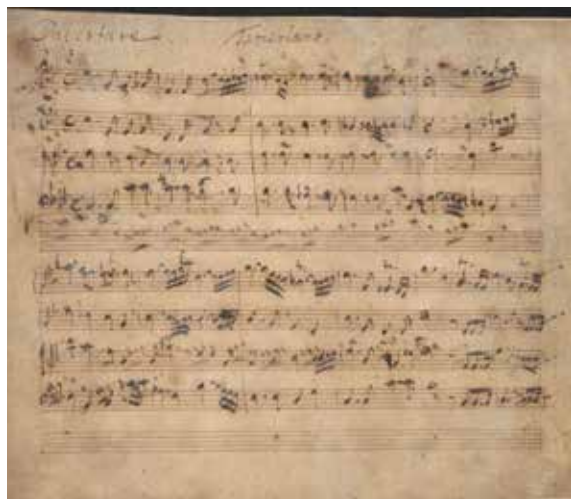 Ouverture. Tamerlano.